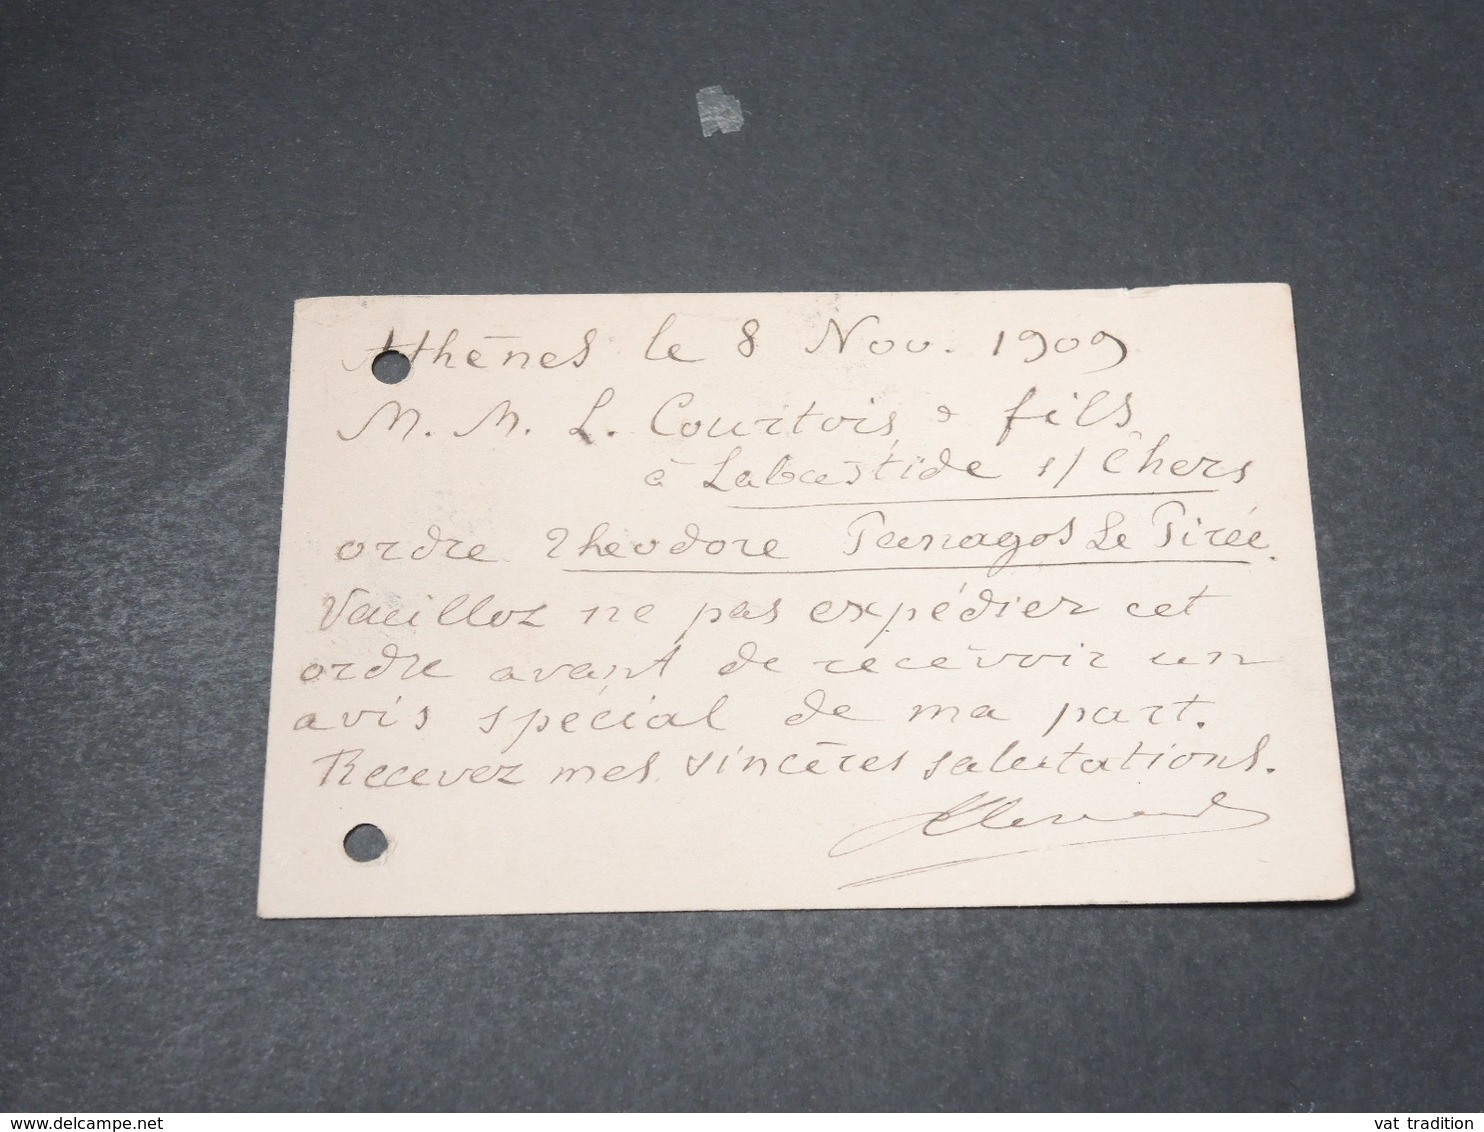 Athènes le 8 Nov. 1909
M. M. L. Courtois & fils
à Labastide s/ Lhers
ordre Theodore Panagos Le Pirée.
Veuillez ne pas expédier cet
ordre avant de recevoir un
avis spécial de ma part.
Recevez mes sincères salutations.
delcampe.net
vat tradition